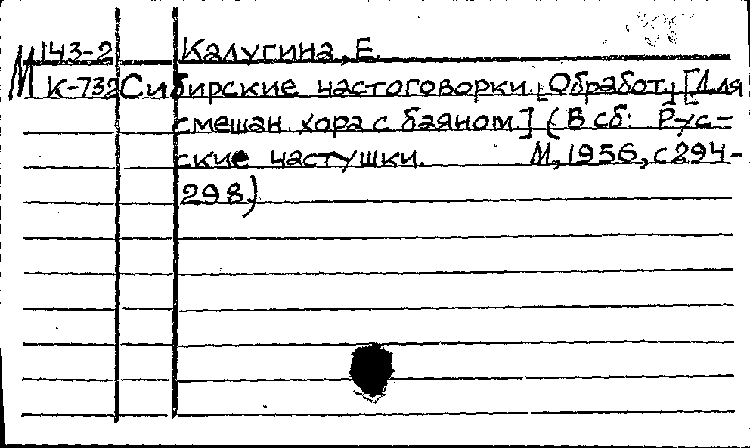 М 143-2 Калугина, Е.
К-732 Сибирские частоговорки. Обработ. [Для
смешан. хора с баяном.] (В сб: Рус-
ские частушки. М, 1956, с 294-
298)